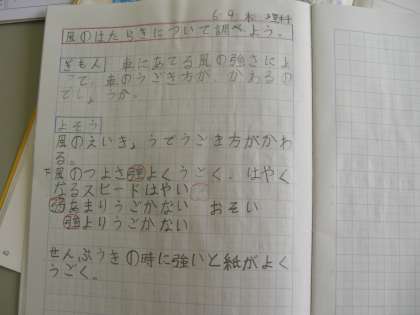 6.9 木 理科
風のはたらきについて調べよう。
ぎもん 車にあてる風の強さによ
って、車のうごき方が、かわるの
でしょうか。
よそう
風のえいきょうでうごき方がかわ
る。
風のつよさ強よくうごく。はやく
なるスピードはやい
弱あまりうごかない おそい
強よりうごかない
せんぷうきの時に強いと紙がよく
うごく。